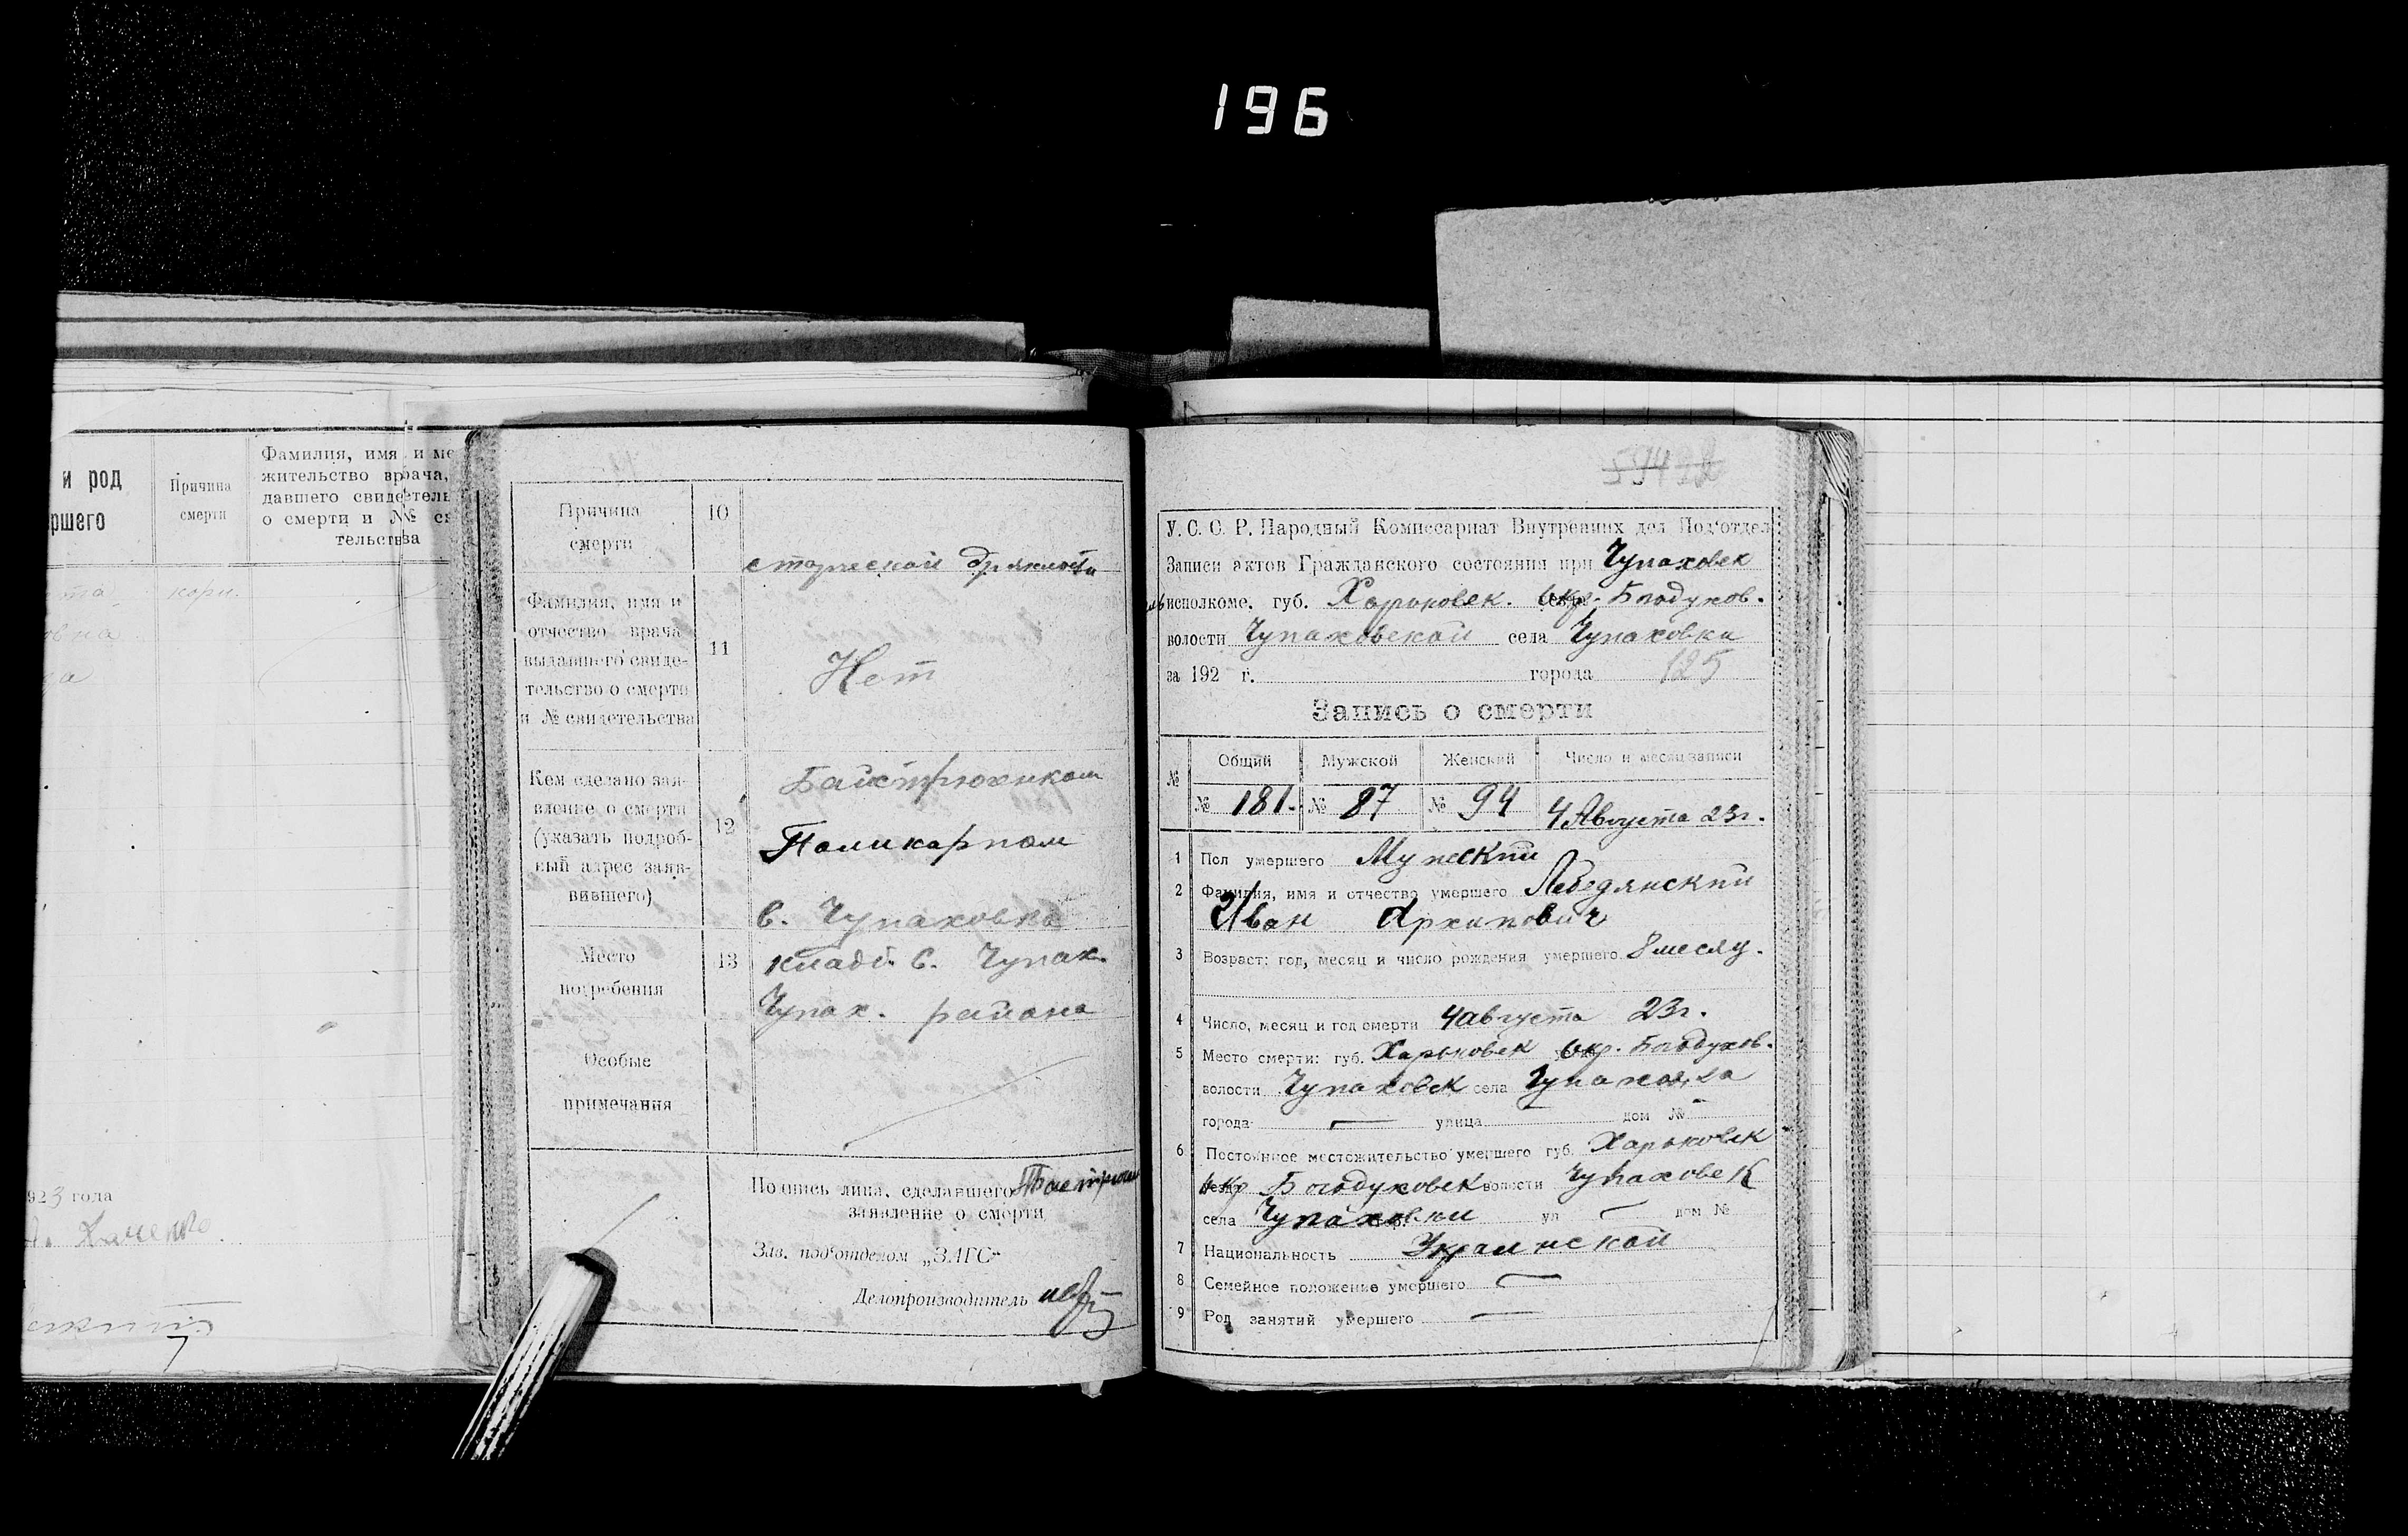 196
и род
ршего
Причина
смерти
Фамилия, имя и ме
жительство врача,
давшего свидетель
о смерти и №№ св
тельства
кори
923 года
Причина
смерти
10
старческой дряхлости
Фамилия, имя и
отчество врача
выдавшего свиде-
тельство о смерти
и № свидетельства
11
Нет
Кем сделано зая-
вление о смерти
(указать подроб-
ный адрес заяв-
вившего)
12
Поликарпом
с. Чупаховка
Место
погребения
13
кладб. с. Чупах.
Чупах. района
Особые
примечания
Подпись лица, сделавшего
заявление о смерти
Зав. под'отделом „ЗАГС“
Делопроизводитель
У. С. С. Р. Народный Комиссариат Внутренних дел Под'отдел
Записи актов Гражданского состояния при Чупаховск
исполкоме, губ. Харьковск. окр. Богодухов.
волости Чупаховской села Чупаховки
за 192 г. города 125
Запись о смерти
№ Общий Мужской Женский Число и месяц записи
№ 181. № 87 № 94 4 Августа 23г.
1 Пол умершего Мужский
2 Фамилия, имя и отчество умершего Лебедянский
Иван Архипович
3 Возраст: год, месяц и число рождения умершего 8 месяц.
4 Число, месяц и год смерти 4 августа 23г.
5 Место смерти: губ. Харьковск окр. Богодухов.
волости Чупаховск села Чупаховка
города — улица дом № —
6 Постоянное местожительство умершего губ. Харьковск
окр Богодуховск волости Чупаховск
села Чупаховки ул — дом №
7 Национальность Украинской
8 Семейное положение умершего —
9 Род занятий умершего —